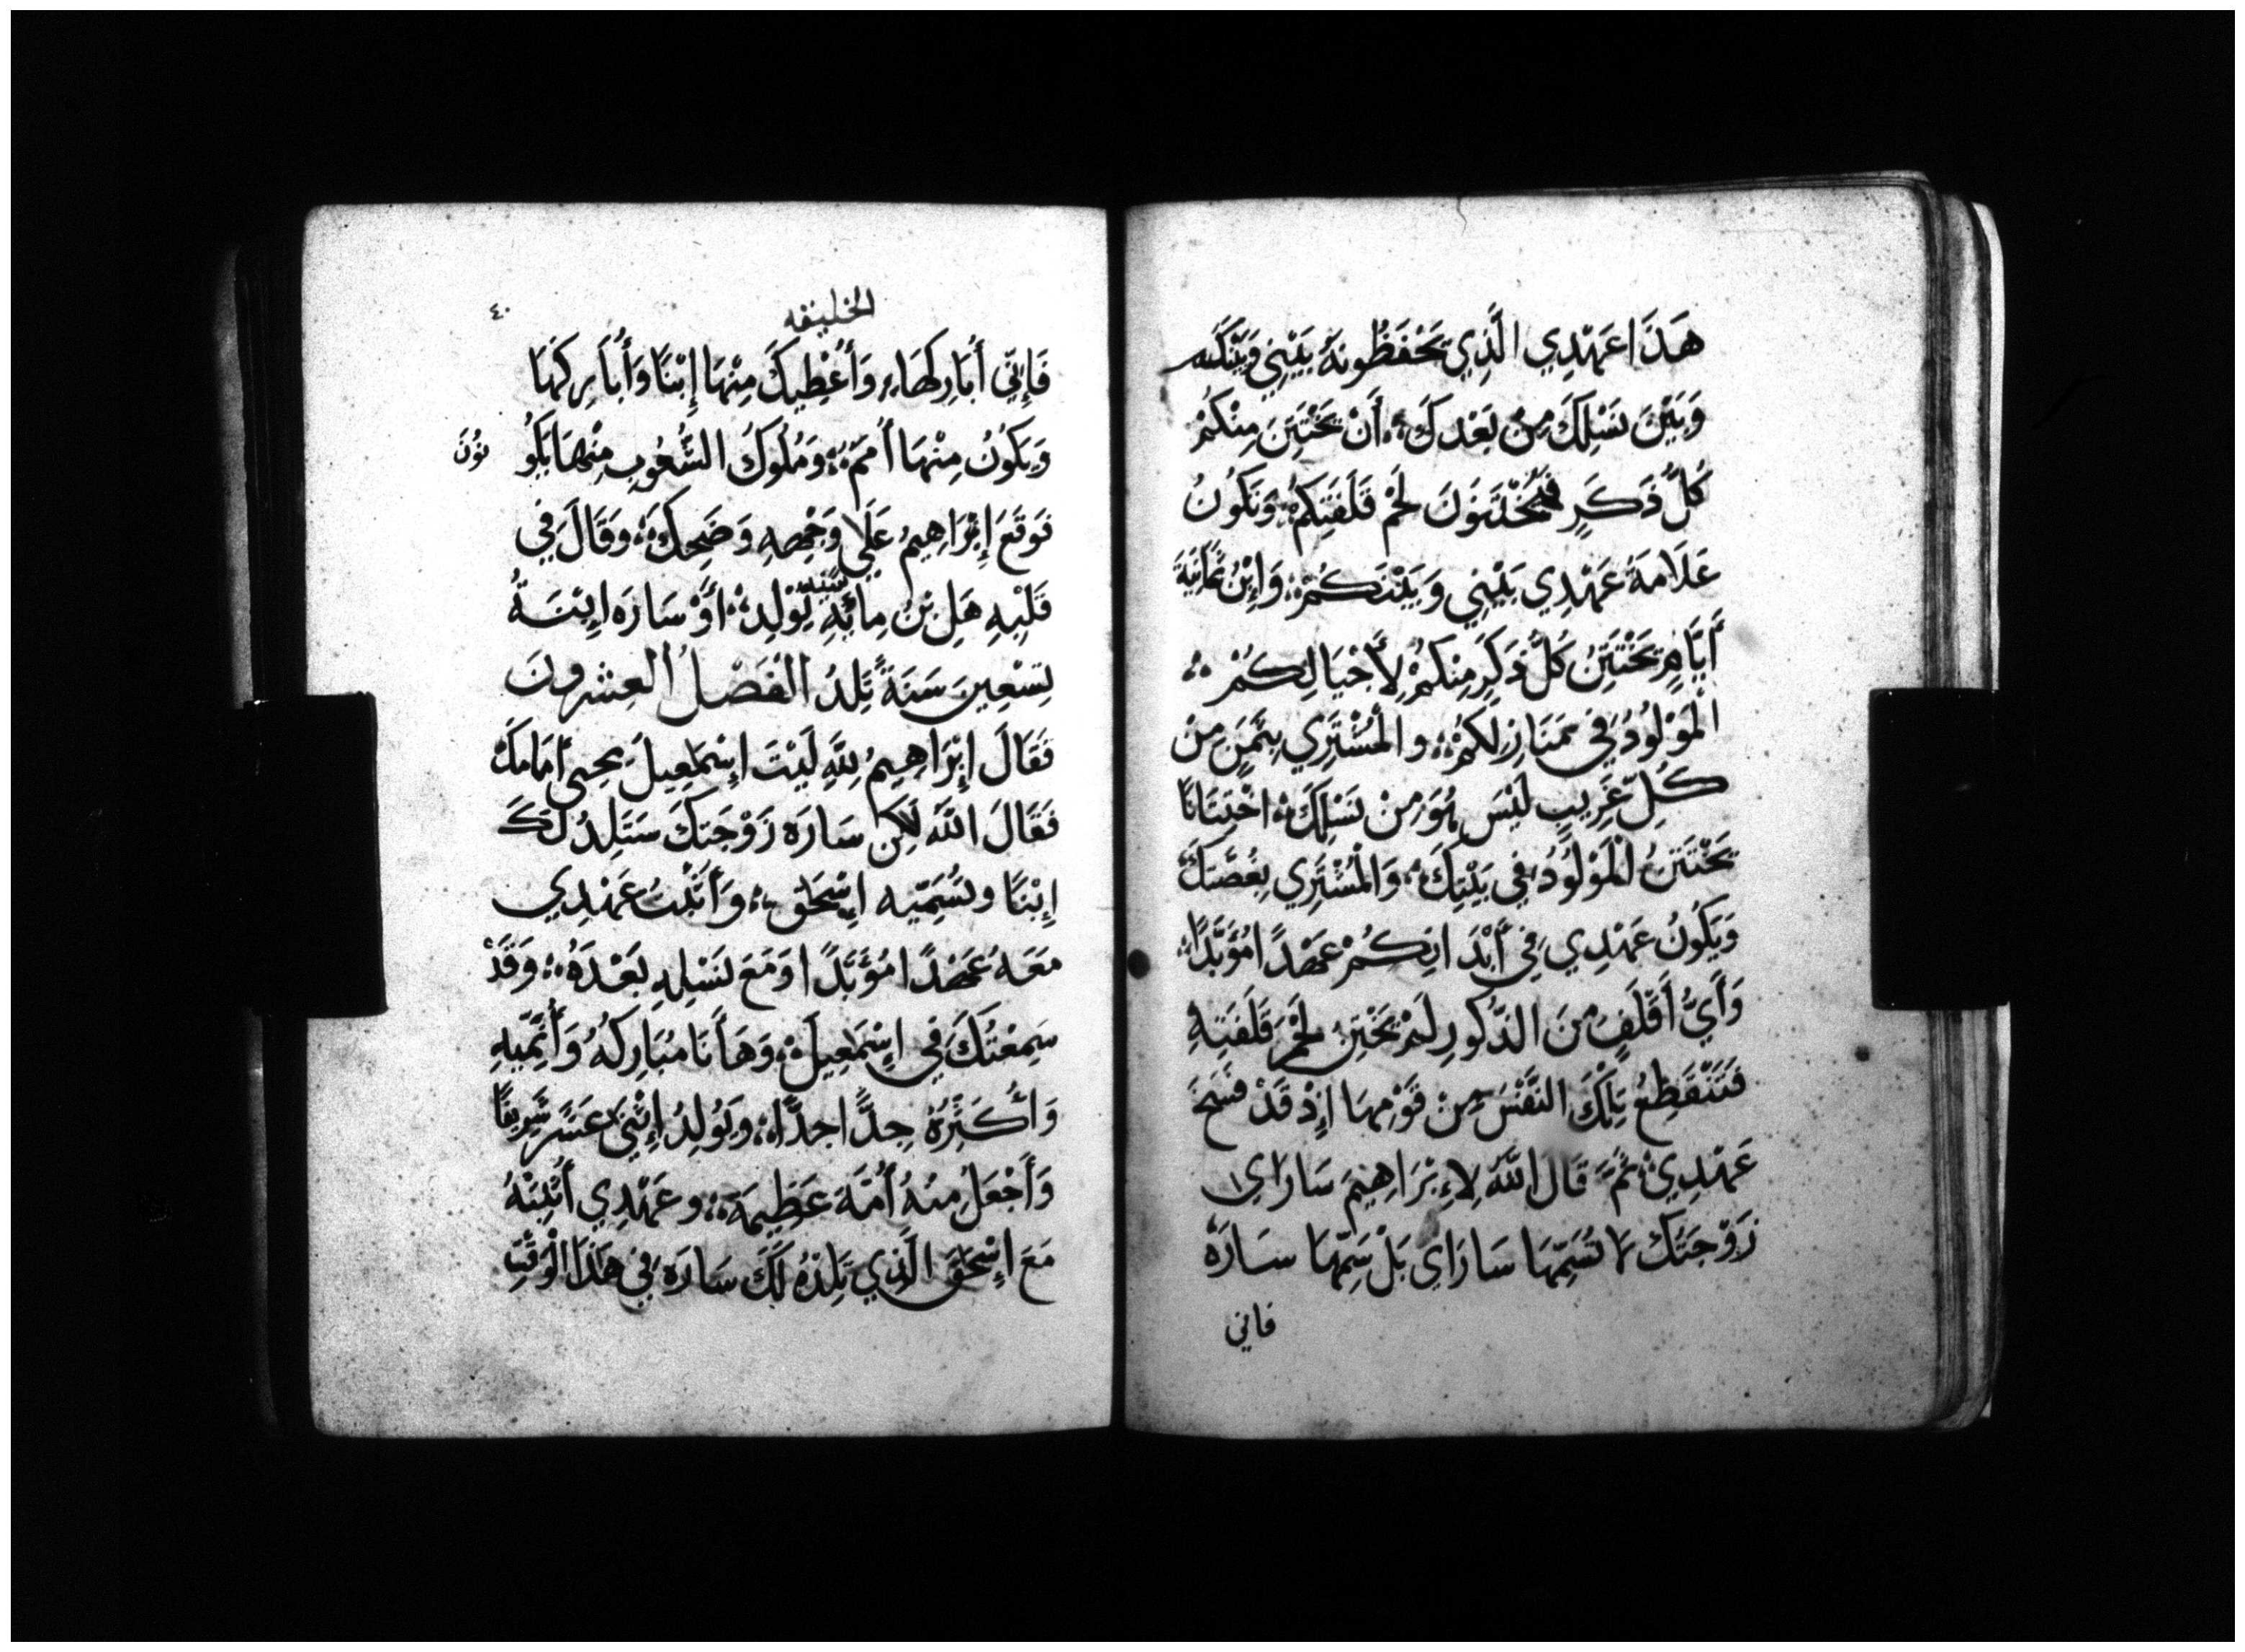 هَذَا عَهْدِي الَّذِي تَحْفَظُونَهُ بَيْنِي وَبَيْنَكُم
وَبَيْنَ نَسْلِكَ مِنْ بَعْدِكَ، أَنْ يَخْتَتِنَ مِنْكُمْ
كُلُّ ذَكَرٍ فَتُخْتَنُونَ لَحْمَ قَلَفَتِكُمْ، وَتَكُونُ
عَلَامَةَ عَهْدِي بَيْنِي وَبَيْنَكُمْ، وَابْنُ ثَمَانِيَةَ
أَيَّامٍ يَخْتَتِنُ كُلُّ ذَكَرٍ مِنْكُمْ لِأَجْيَالِكُمْ
الْمَوْلُودُ فِي مَنَازِلِكُمْ، والْمُشْتَرِي بِثَمَنٍ مِنْ
كُلِّ غَرِيبٍ لَيْسَ هُوَ مِنْ نَسْلِكَ، اخْتِتَانًا
يَخْتَتِنُ الْمَوْلُودُ فِي بَيْتِكَ، وَالْمُشْتَرِي بِفِضَّتِكَ
وَيَكُونُ عَهْدِي فِي أَبْدَانِكُمْ عَهْدًا مُؤَبَّدًا
وَأَيُّ أَقْلَفٍ مِنَ الذُّكُورِ لَمْ يَخْتِنْ لَحْمَ قَلَفَتِهِ
فَتَنْقَطِعُ تِلْكَ النَّفْسُ مِنْ قَوْمِهَا إِذْ قَدْ فَسَخَ
عَهْدِي، ثُمَّ قَالَ اللَّهُ لِإِبْرَاهِيمَ سَارَاي
زَوْجَتُكَ لَا تُسَمِّهَا سَارَاي بَلْ سَمِّهَا سَارَه
فاني
الخليقه
٤٠
فَإِنِّي أُبَارِكَهَا، وَأُعْطِيكَ مِنْهَا إِبْنًا وَأُبَارِكَهَا
وَيَكُونُ مِنْهَا أُمَمٌ، وَمُلُوكُ الشُّعُوبِ مِنْهَا يَكُو
نُونَ
فَوَقَعَ إِبْرَاهِيمُ عَلَي وَجْهِهِ وَضَحِكَ، وَقَالَ فِي
قَلْبِهِ هَلِ بْنُ مِائِةِ سَنَه يُوْلِدُ، أَوْ سَارَه إِبْنَةُ
تِسْعِينَ سَنَةً تَلِدُ الْفَصْلُ الْعِشْرونَ
فَقَالَ إِبْرَاهِيمُ لِلَّهِ لَيْتَ إِسْمَعِيلَ يحيى أَمَامَكَ
فَقَالَ اللَّه لَكِن سَارَه زَوْجَتَكَ سَتَلِدُ لَكَ
إِبْنًا وتُسَمِّيه إِسْحَق، وَأُثَبِّتُ عَهْدِي
مَعَهُ عَهْدًا مُؤَبَّدًا وَمَعَ نَسْلِهِ بَعْدَهُ، وَقَدْ
سَمِعْتُكَ فِي إِسْمَعِيلَ، وَهَا أَنَا مُبَارِكُهُ وَأُنَمِّيهِ
وَأُكَثِّرَهُ جِدًّا جِدًّا، ويُولِدُ إِثْنَي عَشَرَ شَرِيفًا
وَأَجْعَلُ مِنْهُ أُمَّةَ عَظِيمَةَ، وعَهْدِي أُثْبِتْهُ
مَعَ إِسْحَقَ الَّذِي تَلِدْهُ لَكَ سَارَه فِي هَذَا الْوَقْتِ